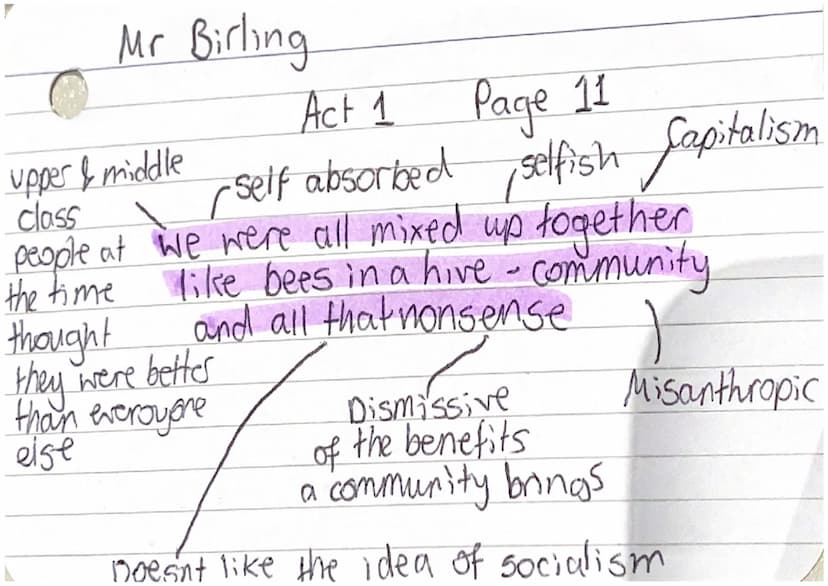 Mr Birling
Act 1 Page 11
upper & middle
class
people at
the time
thought
they were better
than everoyone
else
self absorbed
selfish
Capitalism
we were all mixed up together
like bees in a hive - community
and all that nonsense
Dismissive
of the benefits
a community brings
Misanthropic
Doesnt like the idea of socialism